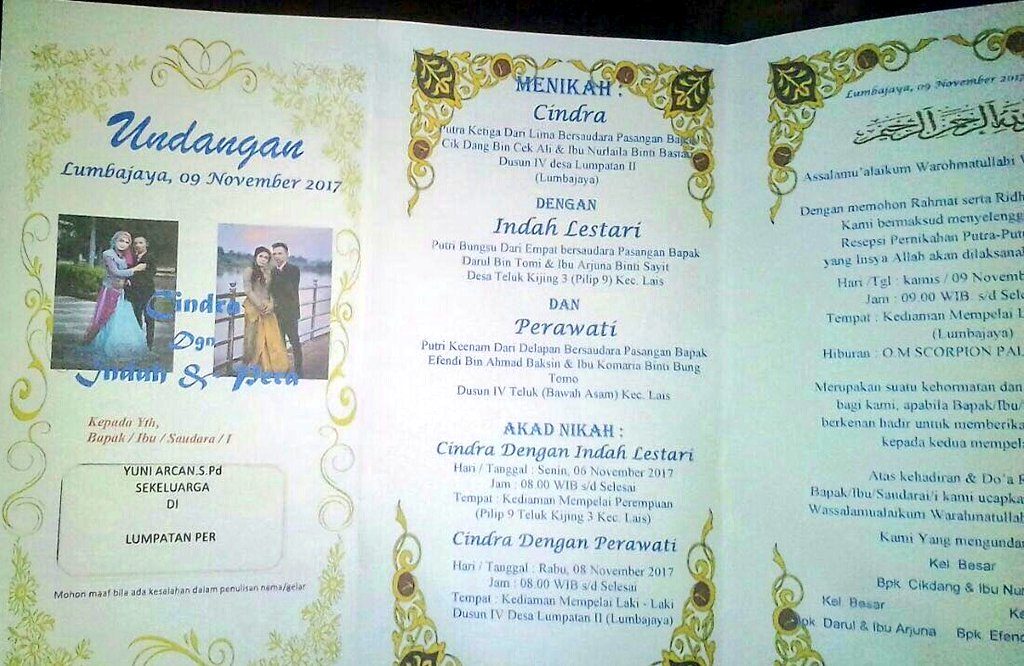 Undangan
Lumbajaya, 09 November 2017
Cindra
Dgn
Indah & Pera
Kepada Yth,
Bapak / Ibu / Saudara / I
YUNI ARCAN.S.Pd
SEKELUARGA
DI
LUMPATAN PER
Mohon maaf bila ada kesalahan dalam penulisan nama/gelar
MENIKAH :
Cindra
Putra Ketiga Dari Lima Bersaudara Pasangan Bapak
Cik Dang Bin Cek Ali & Ibu Nurlaila Binti Bastau
Dusun IV desa Lumpatan II
(Lumbajaya)
DENGAN
Indah Lestari
Putri Bungsu Dari Empat bersaudara Pasangan Bapak
Darul Bin Tomi & Ibu Arjuna Binti Sayit
Desa Teluk Kijing 3 (Pilip 9) Kec. Lais
DAN
Perawati
Putri Keenam Dari Delapan Bersaudara Pasangan Bapak
Efendi Bin Ahmad Baksin & Ibu Komaria Binti Bung
Tomo
Dusun IV Teluk (Bawah Asam) Kec. Lais
AKAD NIKAH :
Cindra Dengan Indah Lestari
Hari / Tanggal : Senin, 06 November 2017
Jam : 08.00 WIB s/d Selesai
Tempat : Kediaman Mempelai Perempuan
(Pilip 9 Teluk Kijing 3 Kec. Lais)
Cindra Dengan Perawati
Hari / Tanggal : Rabu, 08 November 2017
Jam : 08.00 WIB s/d Selesai
Tempat : Kediaman Mempelai Laki - Laki
Dusun IV Desa Lumpatan II (Lumbajaya)
Lumbajaya, 09 November 2017
الله الرحمن الرحيم
Assalamu'alaikum Warohmatullahi
Dengan memohon Rahmat serta Ridh
Kami bermaksud menyelengg
Resepsi Pernikahan Putra-Put
yang Insya Allah akan dilaksana
Hari /Tgl : kamis / 09 Novemb
Jam : 09.00 WIB s/d Sele
Tempat : Kediaman Mempelai L
(Lumbajaya)
Hiburan : O.M SCORPION PAL
Merupakan suatu kehormatan dan
bagi kami, apabila Bapak/Ibu/
berkenan hadir untuk memberika
kepada kedua mempel
Atas kehadiran & Do'a R
Bapak/Ibu/Saudarai/i kami ucapka
Wassalamualaikum Warahmatullah
Kami Yang mengundan
Kel. Besar
Bpk. Cikdang & Ibu Nur
Kel. Besar
Ke
Bpk. Darul & Ibu Arjuna Bpk. Efend